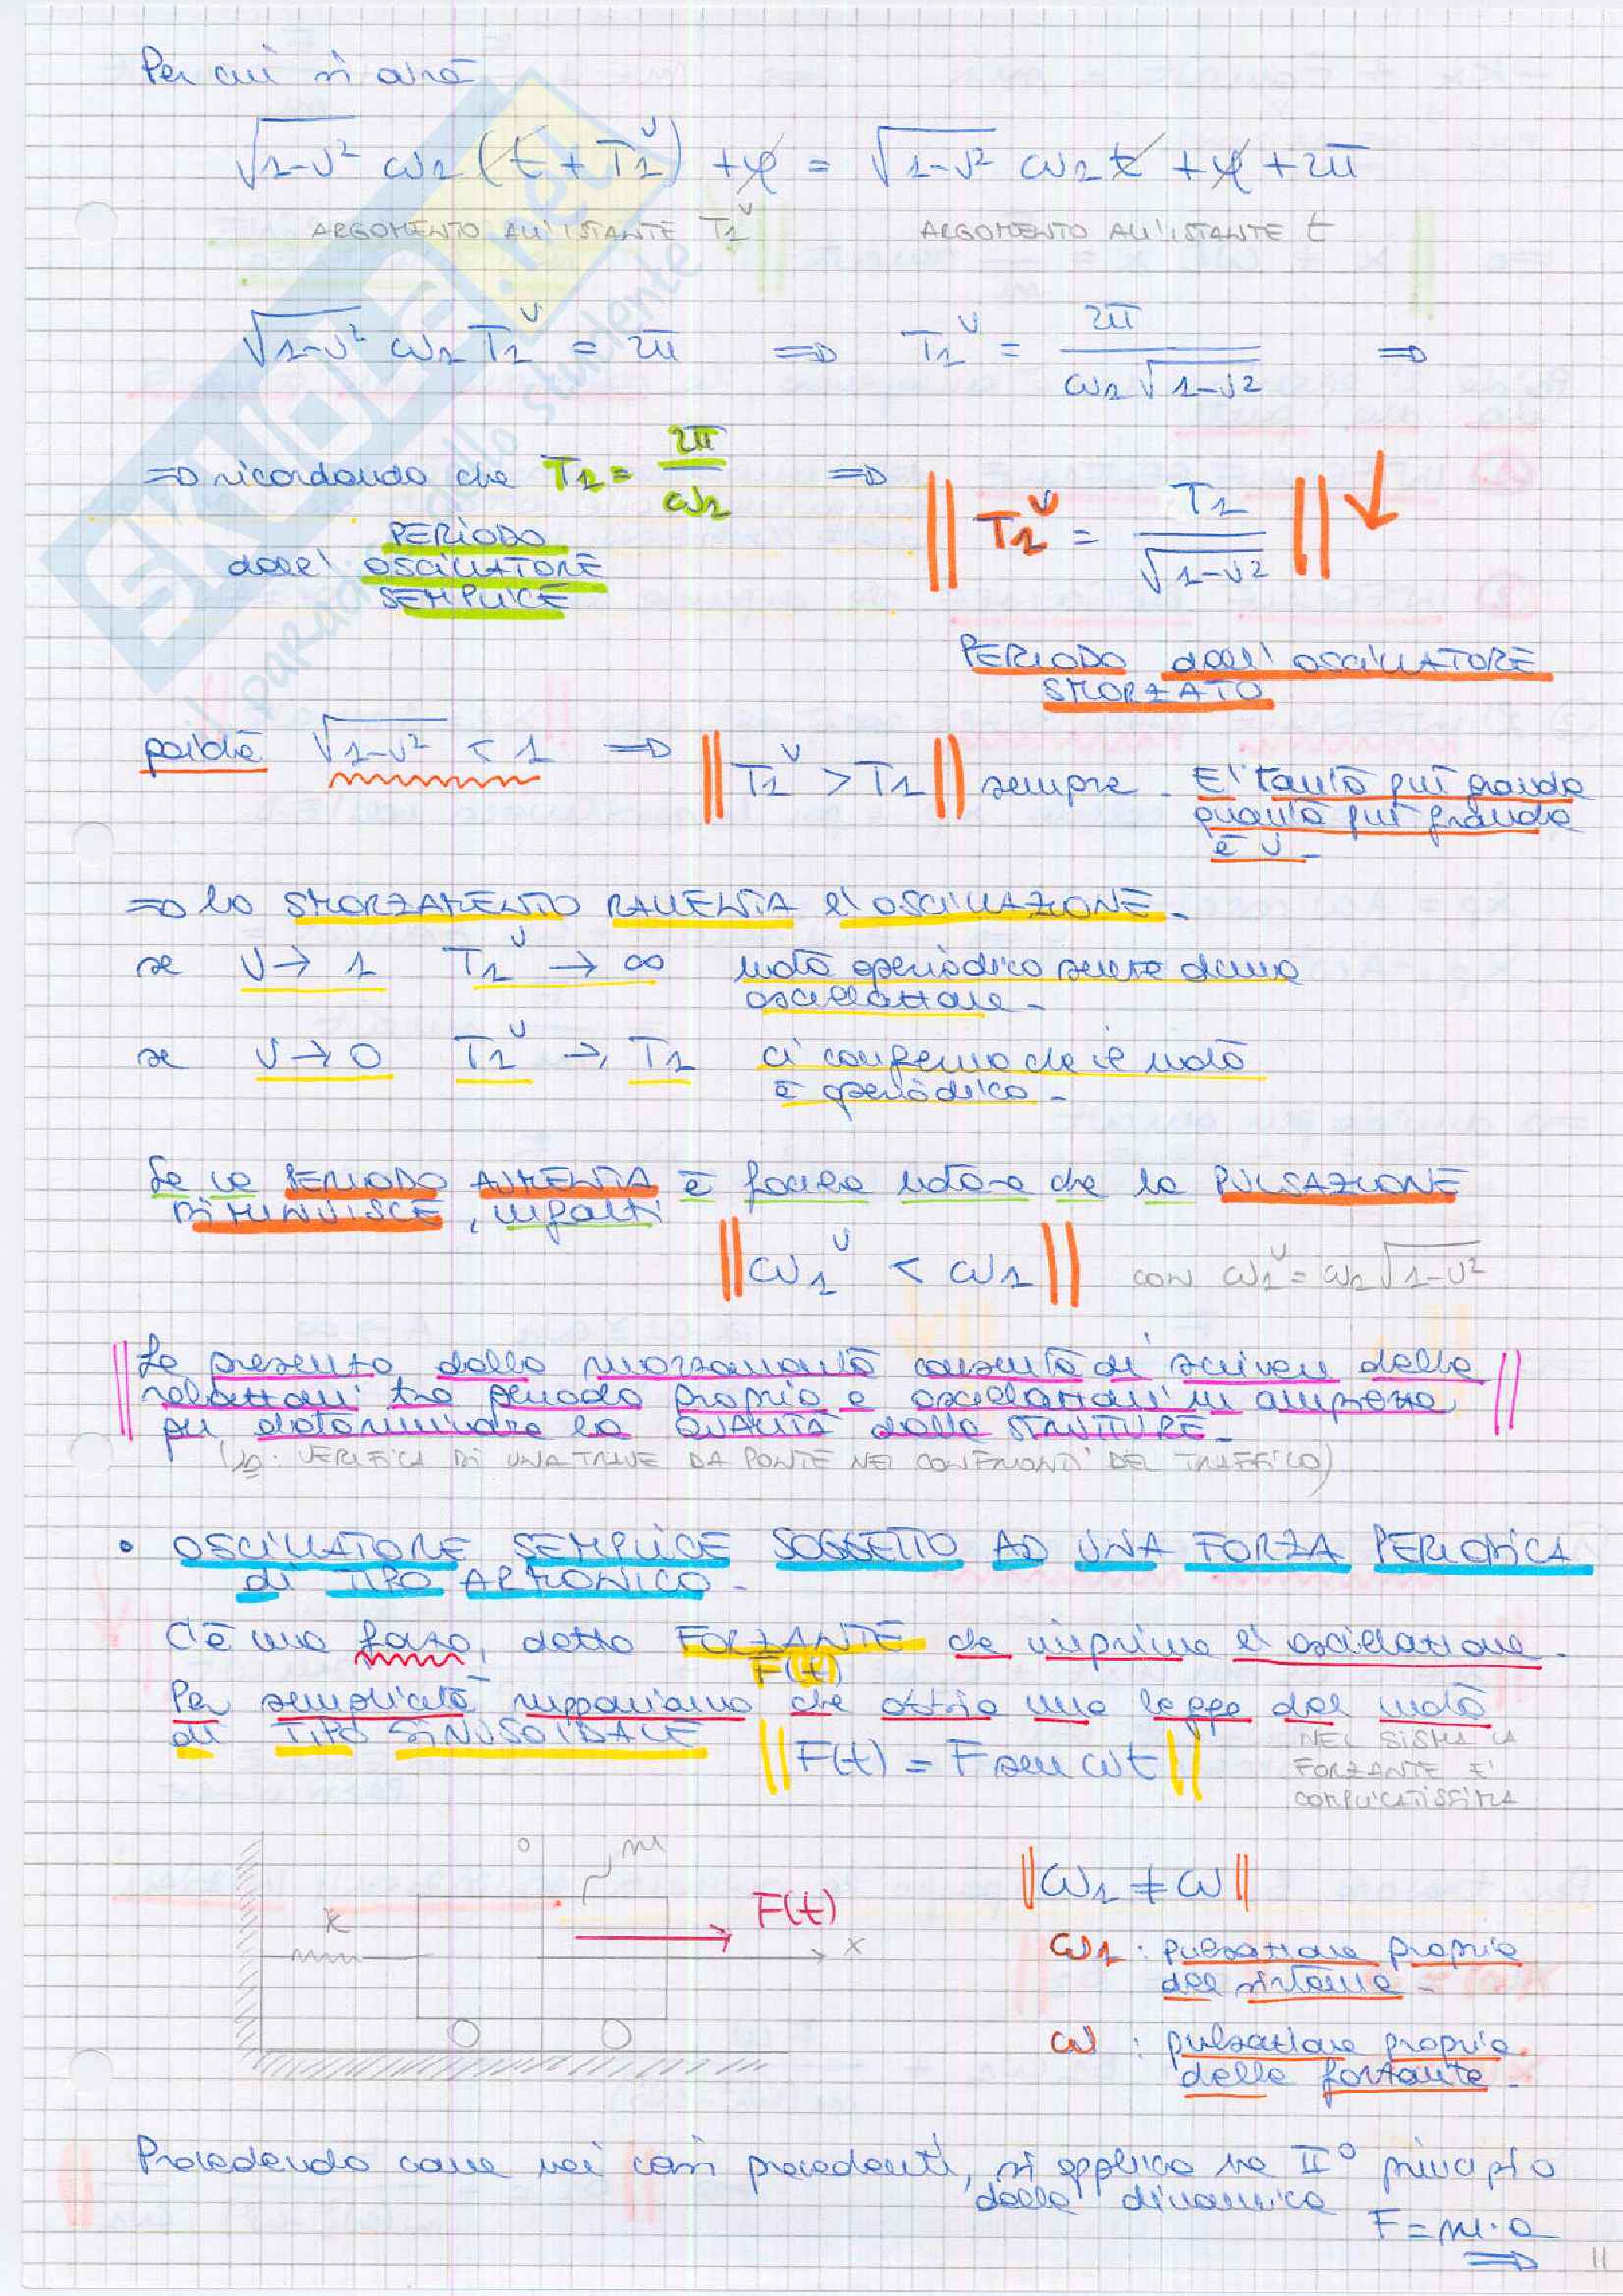 Per cui si avrà
√1-ν² ω1 (t + T1^ν) + φ = √1-ν² ω1 t + φ + 2π
ARGOMENTO ALL'ISTANTE T1^ν ARGOMENTO ALL'ISTANTE t
√1-ν² ω1 T1^ν = 2π ⇒ T1^ν = 2π / ω1 √1-ν² ⇒
⇒ ricordando che T1 = 2π / ω1 ⇒ || T1^ν = T1 / √1-ν² || ↓
PERIODO
dell' OSCILLATORE
SEMPLICE
PERIODO dell' OSCILLATORE
SMORZATO
poiché √1-ν² < 1 ⇒ || T1^ν > T1 || sempre - E' tanto più grande
quanto più grande
è ν -
⇒ lo SMORZAMENTO RALLENTA l'OSCILLAZIONE -
se ν → 1 T1^ν → ∞ moto aperiodico senza alcuna
oscillazione -
se ν → 0 T1^ν → T1 ci conferma che il moto
è periodico -
Se il PERIODO AUMENTA è facile notare che la PULSAZIONE
DIMINUISCE, infatti
|| ω1^ν < ω1 || con ω1^ν = ω1 √1-ν²
La presenza dello smorzamento consente di scrivere delle
relazioni tra periodo proprio e oscillazioni in ampiezza
per determinare la QUALITÀ delle STRUTTURE -
(es: VERIFICA DI UNA TRAVE DA PONTE NEI CONFRONTI DEL TRAFFICO)
• OSCILLATORE SEMPLICE SOGGETTO AD UNA FORZA PERIODICA
di TIPO ARMONICO -
C'è una forza, detta FORZANTE che imprime l'oscillazione -
F(t)
Per semplicità supponiamo che abbia una legge del moto
di TIPO SINUSOIDALE || F(t) = F sen ωt ||
NEL SISMA LA
FORZANTE E'
COMPLICATISSIMA
o m
k F(t) x
|| ω1 ≠ ω ||
ω1 : pulsazione propria
del sistema -
ω : pulsazione propria
della forzante -
Procedendo come nei casi precedenti, si applica il II° principio
della dinamica
F = m·a
⇒ 11
SKUOLA.net
il paradiso dello studente